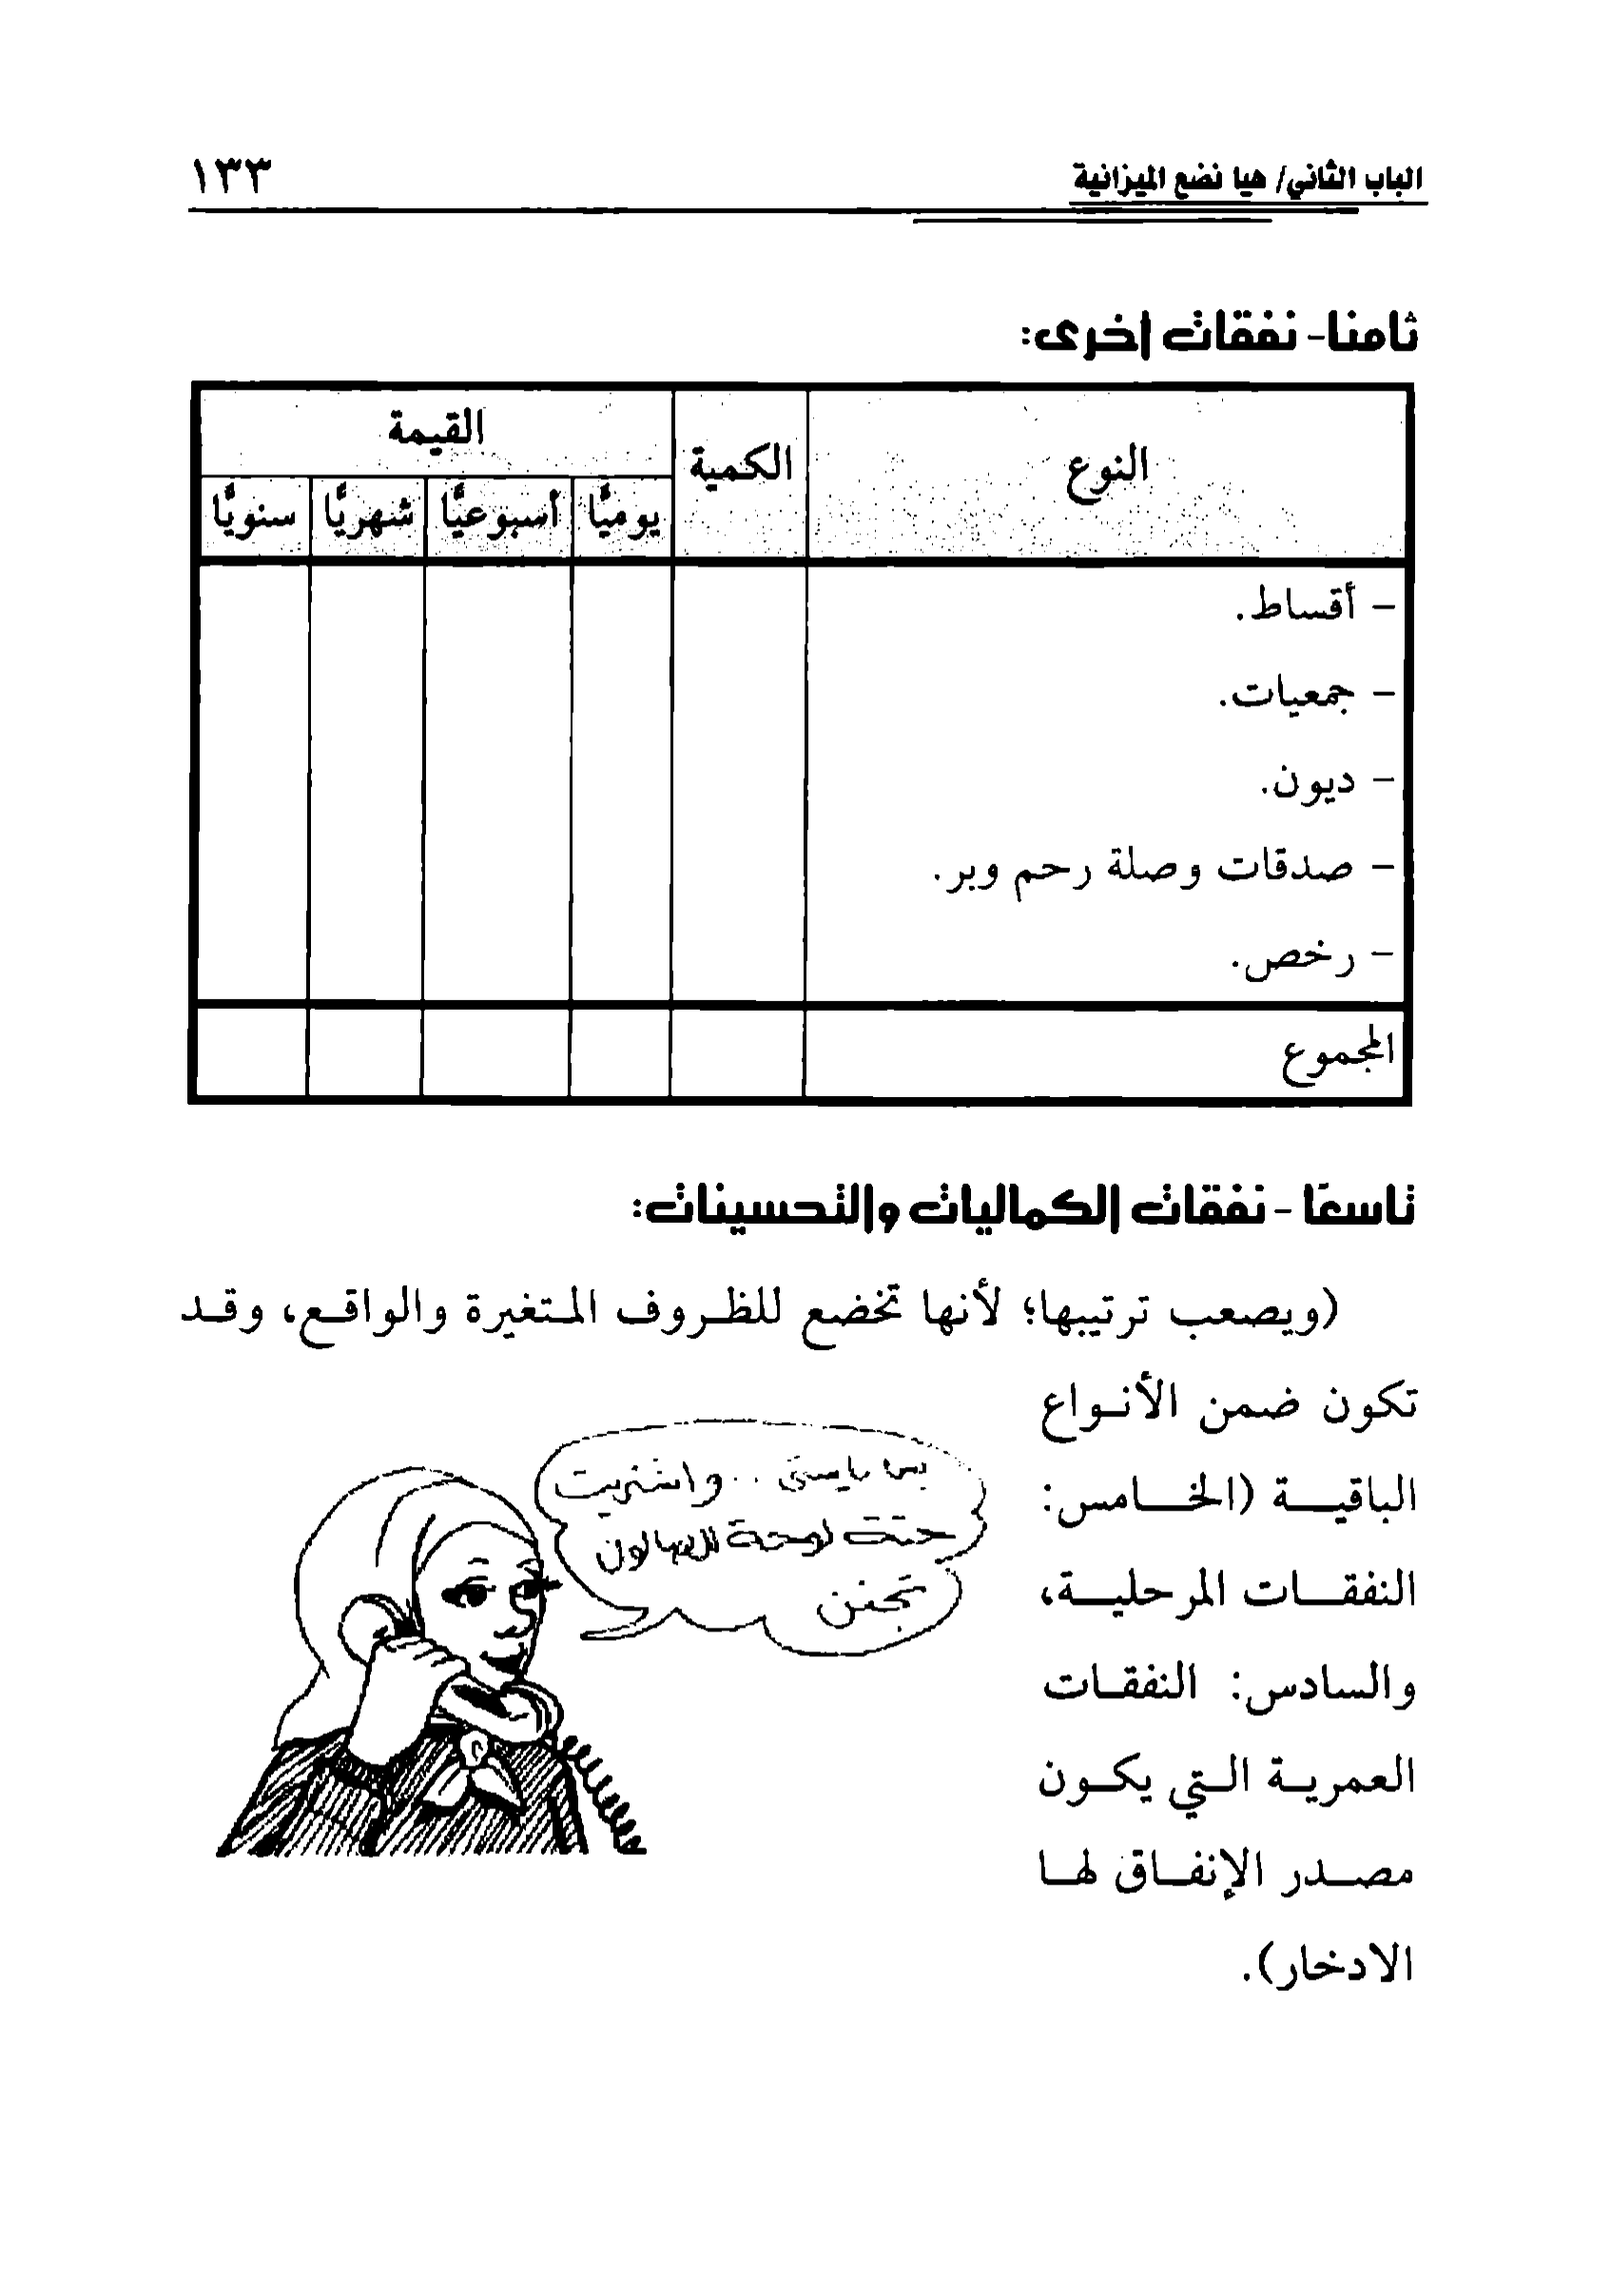 الباب الثاني/ هيا نضع الميزانية ١٣٣
ثامنا- نفقات أخرى:
النوع الكمية القيمة
يوميًّا أسبوعيًّا شهريًّا سنويًّا
- أقساط.
- جمعيات.
- ديون.
- صدقات وصلة رحم وبر.
- رخص.
المجموع
تاسعًا - نفقات الكماليات والتحسينات:
(ويصعب ترتيبها؛ لأنها تخضع للظروف المتغيرة والواقع، وقد
تكون ضمن الأنواع
الباقية (الخامس:
النفقات المرحلية،
والسادس: النفقات
العمرية التي يكون
مصدر الإنفاق لها
الادخار).
بس ياستى .. واشتريت
حتت لوحة للصالون
تجنن